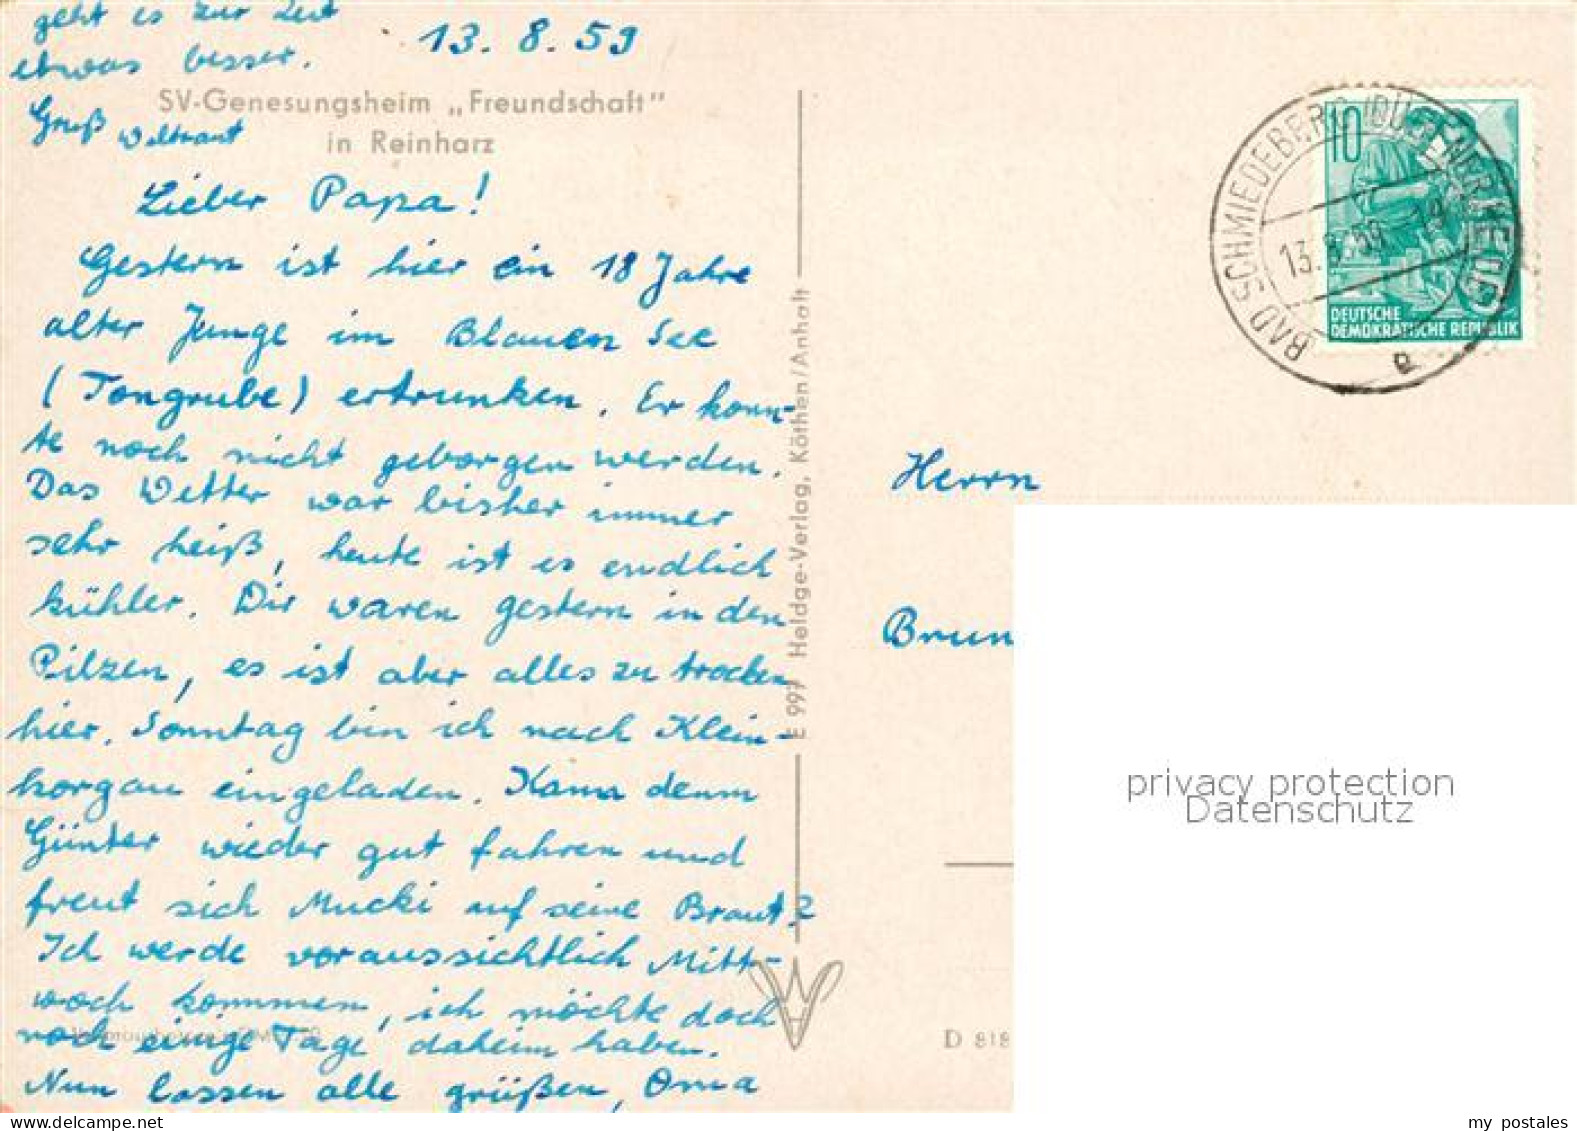 geht es zur Zeit
etwas besser.
Gruß Weltraut
13. 8. 59
SV-Genesungsheim „Freundschaft"
in Reinharz
Lieber Papa!
Gestern ist hier ein 18 Jahre
alter Junge im Blauen See
(Tongrube) ertrunken. Er konn-
te noch nicht geborgen werden.
Das Wetter war bisher immer
sehr heiß, heute ist es endlich
kühler. Wir waren gestern in den
Pilzen, es ist aber alles zu trocken
hier. Sonntag bin ich nach Klein-
korgau eingeladen. Kann denn
Günter wieder gut fahren und
freut sich Mucki auf seine Braut?
Ich werde voraussichtlich Mitt-
woch kommen, ich möchte doch
noch einige Tage daheim haben.
Nun lassen alle grüßen, Oma
E 997 Heldge-Verlag, Köthen/Anhalt
BAD SCHMIEDEBERG (DÜBENER HEIDE)
13.8.59. 19
a
10
DEUTSCHE
DEMOKRATISCHE REPUBLIK
Herrn
Brun
D 818
privacy protection
Datenschutz
my postales